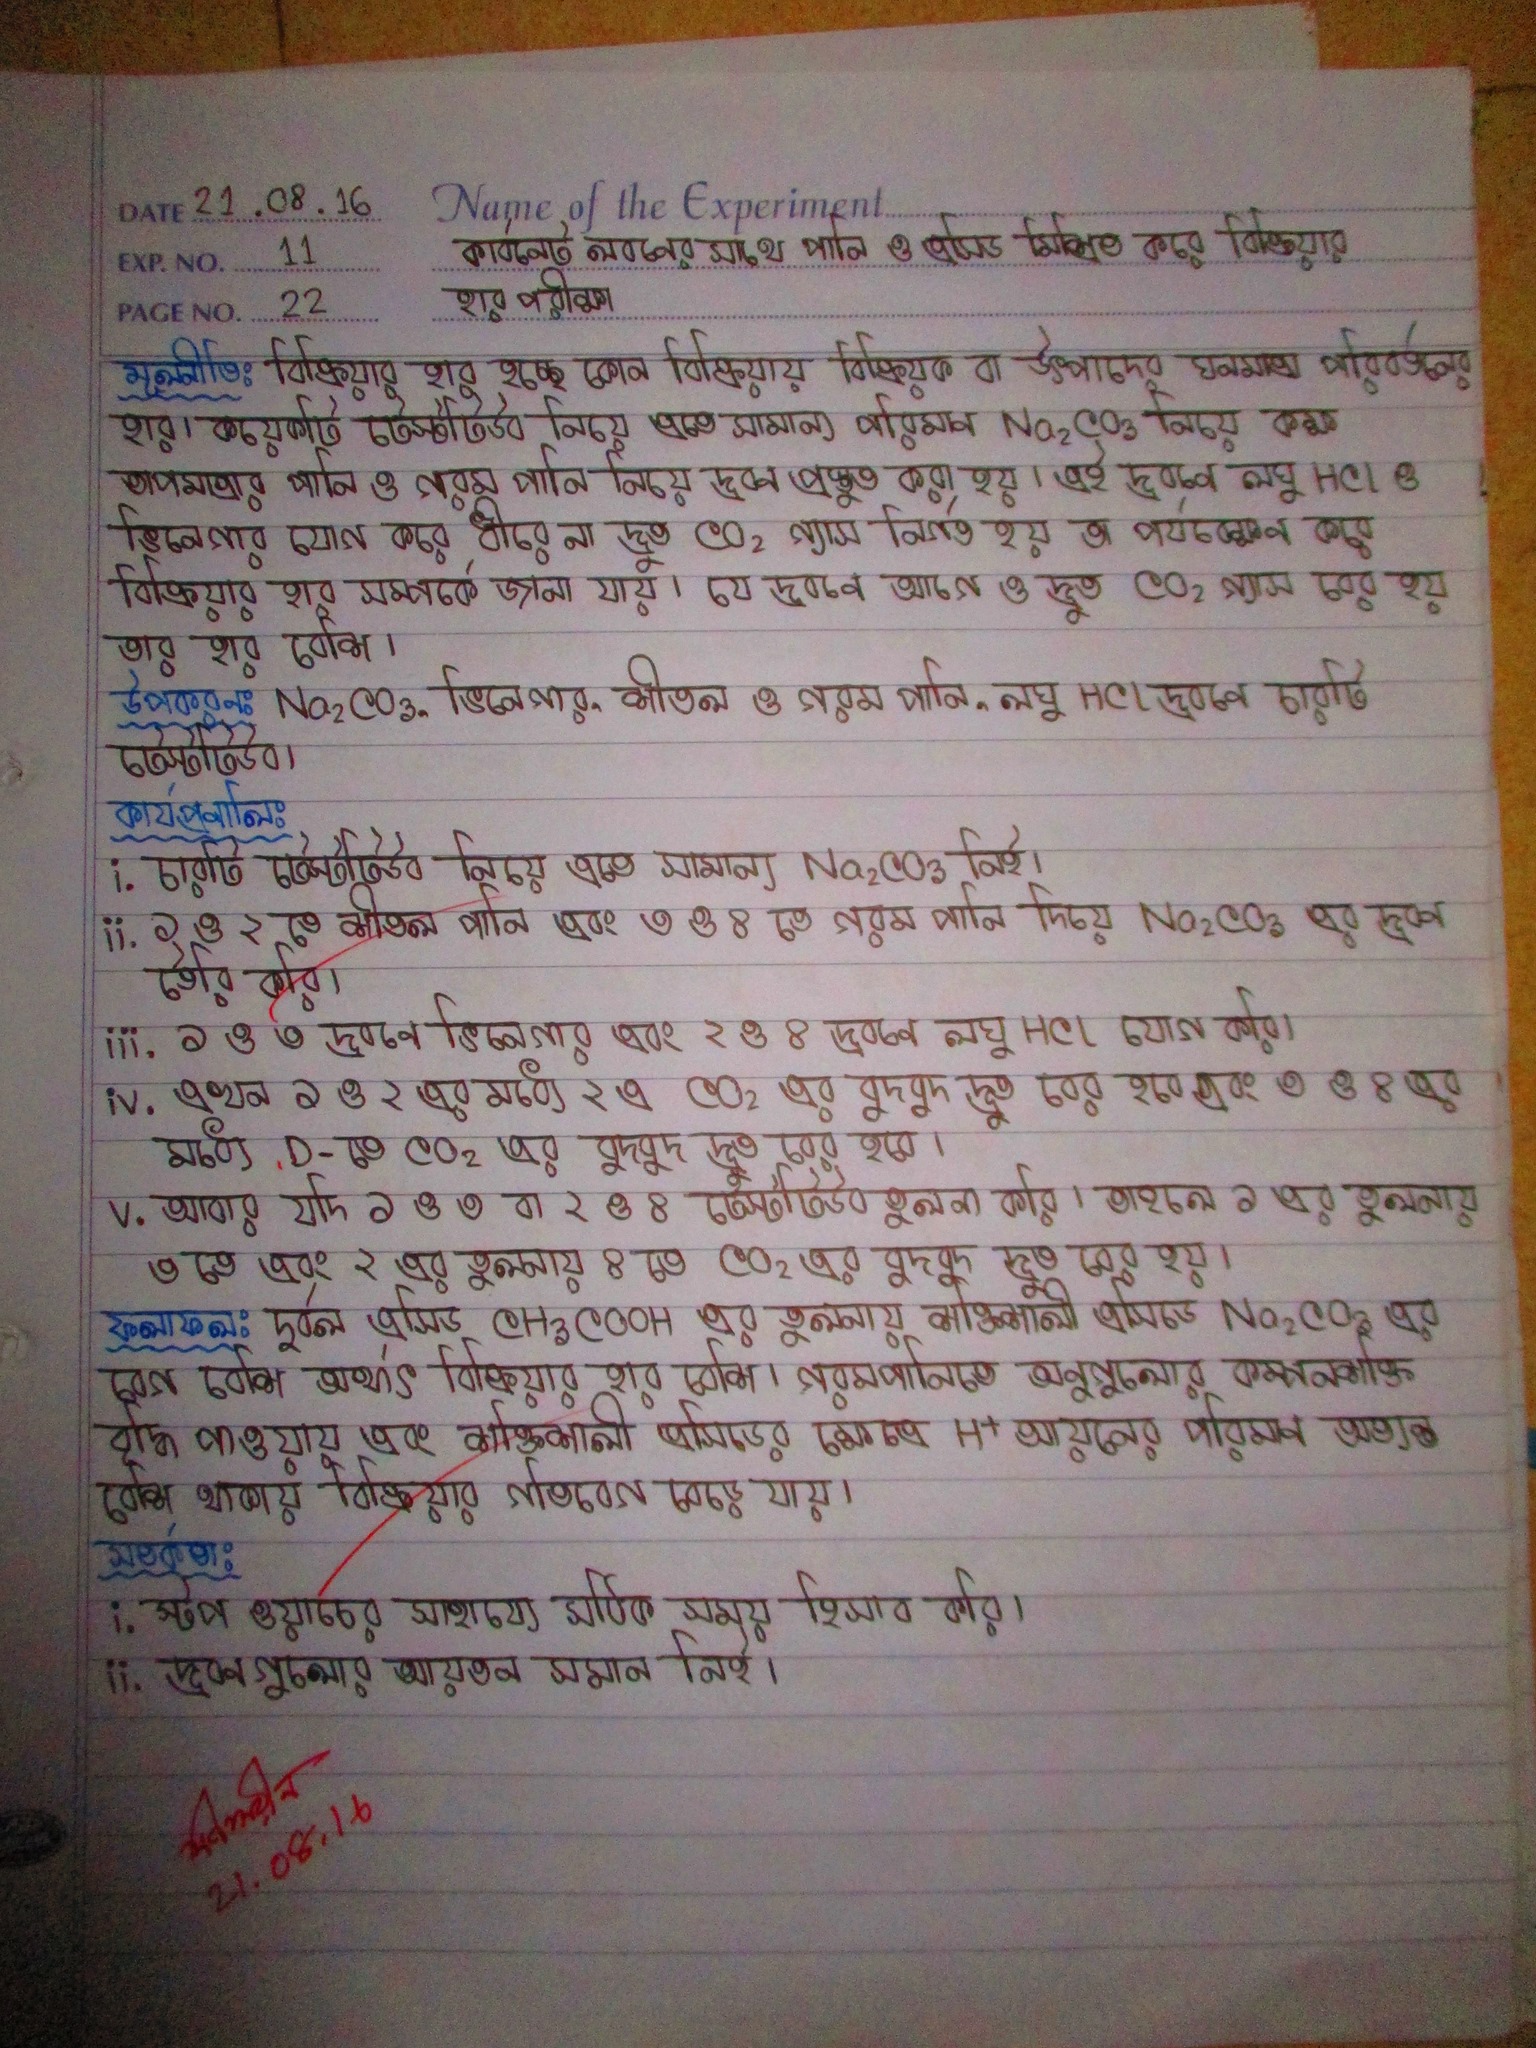 DATE 21.08.16 Name of the Experiment
EXP. NO. 11 কার্বনেট লবনের সাথে পানি ও এসিড মিশ্রিত করে বিক্রিয়ার
PAGE NO. 22 হার পরীক্ষা
মূলনীতিঃ বিক্রিয়ার হার হচ্ছে কোন বিক্রিয়ায় বিক্রিয়ক বা উৎপাদের ঘনমাত্রা পরিবর্তনের
হার। কয়েকটি টেস্টটিউব নিয়ে এতে সামান্য পরিমান Na₂CO₃ নিয়ে কক্ষ
তাপমাত্রার পানি ও গরম পানি নিয়ে দ্রবন প্রস্তুত করা হয়। এই দ্রবনে লঘু HCl ও
ভিনেগার যোগ করে ধীরে না দ্রুত CO₂ গ্যাস নির্গত হয় তা পর্যবেক্ষন করে
বিক্রিয়ার হার সম্পর্কে জানা যায়। যে দ্রবনে আগে ও দ্রুত CO₂ গ্যাস বের হয়
তার হার বেশি।
উপকরনঃ Na₂CO₃, ভিনেগার, শীতল ও গরম পানি, লঘু HCl দ্রবনে চারটি
টেস্টটিউব।
কার্যপ্রনালিঃ
i. চারটি টেস্টটিউব নিয়ে এতে সামান্য Na₂CO₃ নিই।
ii. ১ ও ২ তে শীতল পানি এবং ৩ ও ৪ তে গরম পানি দিয়ে Na₂CO₃ এর দ্রবন
তৈরি করি।
iii. ১ ও ৩ দ্রবনে ভিনেগার এবং ২ ও ৪ দ্রবনে লঘু HCl যোগ করি।
iv. এখন ১ ও ২ এর মধ্যে ২ এ CO₂ এর বুদবুদ দ্রুত বের হবে এবং ৩ ও ৪ এর
মধ্যে D-তে CO₂ এর বুদবুদ দ্রুত বের হবে।
v. আবার যদি ১ ও ৩ বা ২ ও ৪ টেস্টটিউব তুলনা করি। তাহলে ১ এর তুলনায়
৩ তে এবং ২ এর তুলনায় ৪ তে CO₂ এর বুদবুদ দ্রুত বের হয়।
ফলাফলঃ দূর্বল এসিড CH₃COOH এর তুলনায় শক্তিশালী এসিডে Na₂CO₃ এর
বেগ বেশি অর্থাৎ বিক্রিয়ার হার বেশি। গরমপানিতে অনুগুলোর কম্পনশক্তি
বৃদ্ধি পাওয়ায় এবং শক্তিশালী এসিডের ক্ষেত্রে H⁺ আয়নের পরিমান অত্যন্ত
বেশি থাকায় বিক্রিয়ার গতিবেগ বেড়ে যায়।
সতর্কতাঃ
i. স্টপ ওয়াচের সাহায্যে সঠিক সময় হিসাব করি।
ii. দ্রবনগুলোর আয়তন সমান নিই।
21.08.16